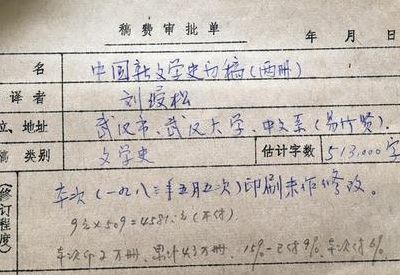 稿费审批单
年 月 日
名 中国新文学史初稿(两册)
译者 刘绶松
立、地址 武汉市、武汉大学、中文系(易竹贤).
稿 类别 文学史 估计字数 513,000字
(修订程度) 本次(一九八三年五月五次)印刷未作修改。
9元×509=4581.元(不付).
本次印2万册、累计43万册、 已付9%、本次付6%